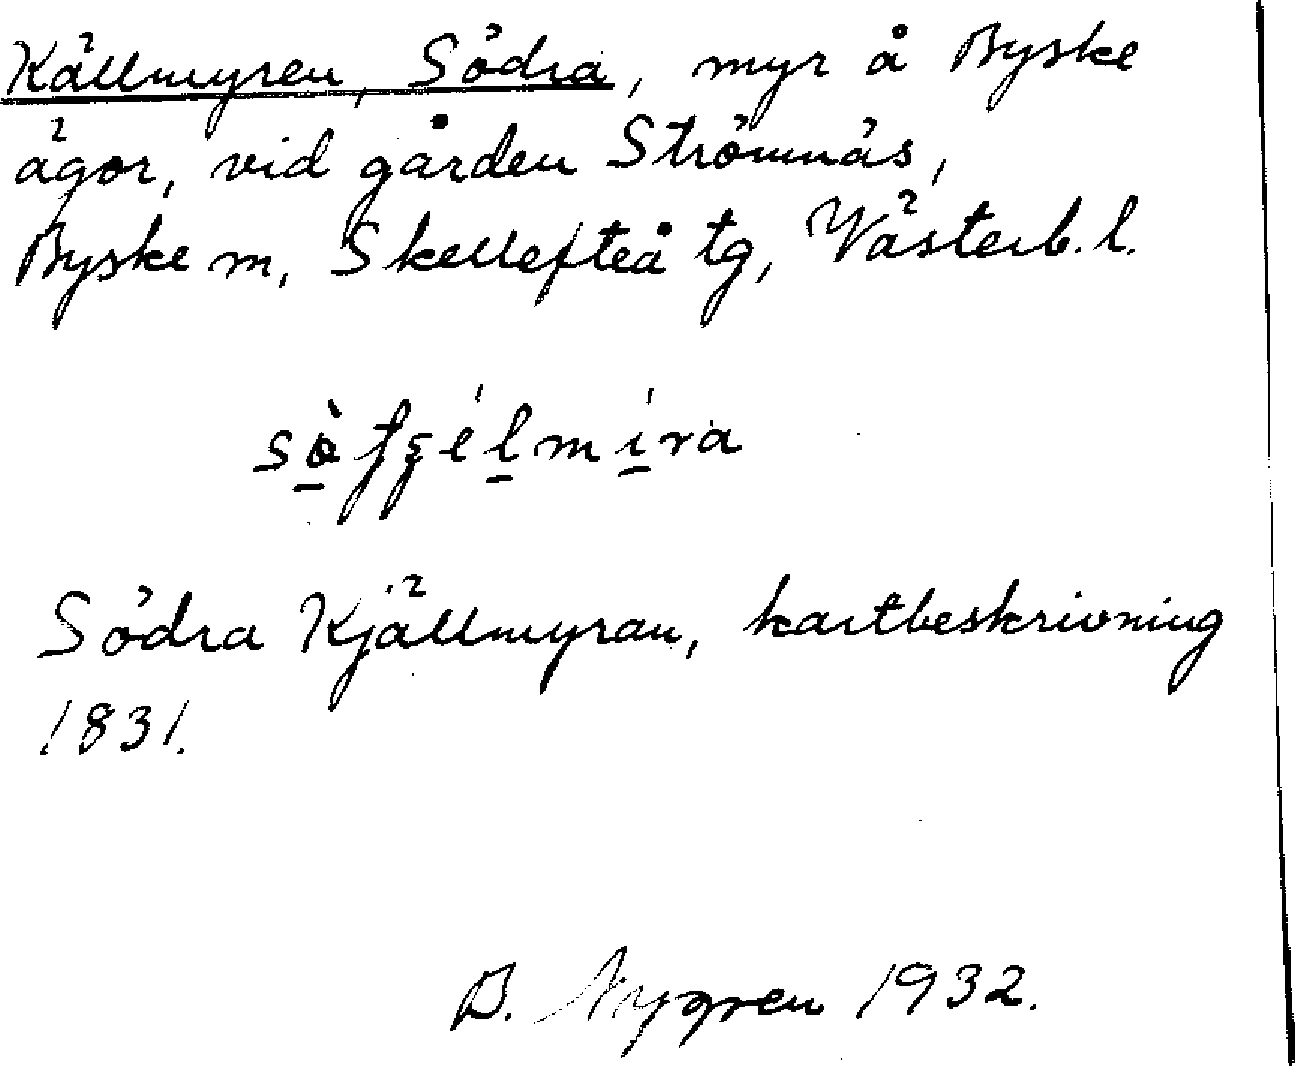 Källmyren, Södra, myr å Byske
ägor, vid gården Strömnäs,
Byske sn, Skellefteå tg, Västerb. l.
Södra Kjällmyran, kartbeskrivning
1831.
B. Nygren 1932.